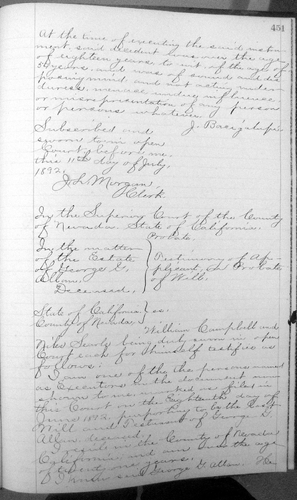 451
At the time of executing the said instru-
ment, said decedent was over the age
of eighteen years to wit of the age of
years and was of sound and dis-
posing mind and not acting under
duress, menace, undue influence
or misrepresentation of any person
or persons whatever.
Subscribed and
sworn to in open
Court before me
this 11th day of July
1892.
Jno. Morgan
Clerk
In the Superior Court of the County
of Nevada State of California.
Probate.
In the matter
of the Estate
of George G.
Allan,
Deceased.
Testimony of Ap-
plicant, on Probate
of Will.
State of California
County of Nevada
ss.
William Campbell and
Niles Searls being duly sworn in open
Court each for himself testifies as
follows:
I am one of the persons named
as Executors in the document now
shown to me marked as filed in
this Court on the Eighteenth day of
June 1892, purporting to be the Last
Will and Testament of George G.
Allan deceased.
I reside in the County of Nevada
California and am over the age
of twenty one years.
I knew said George G. Allan. He